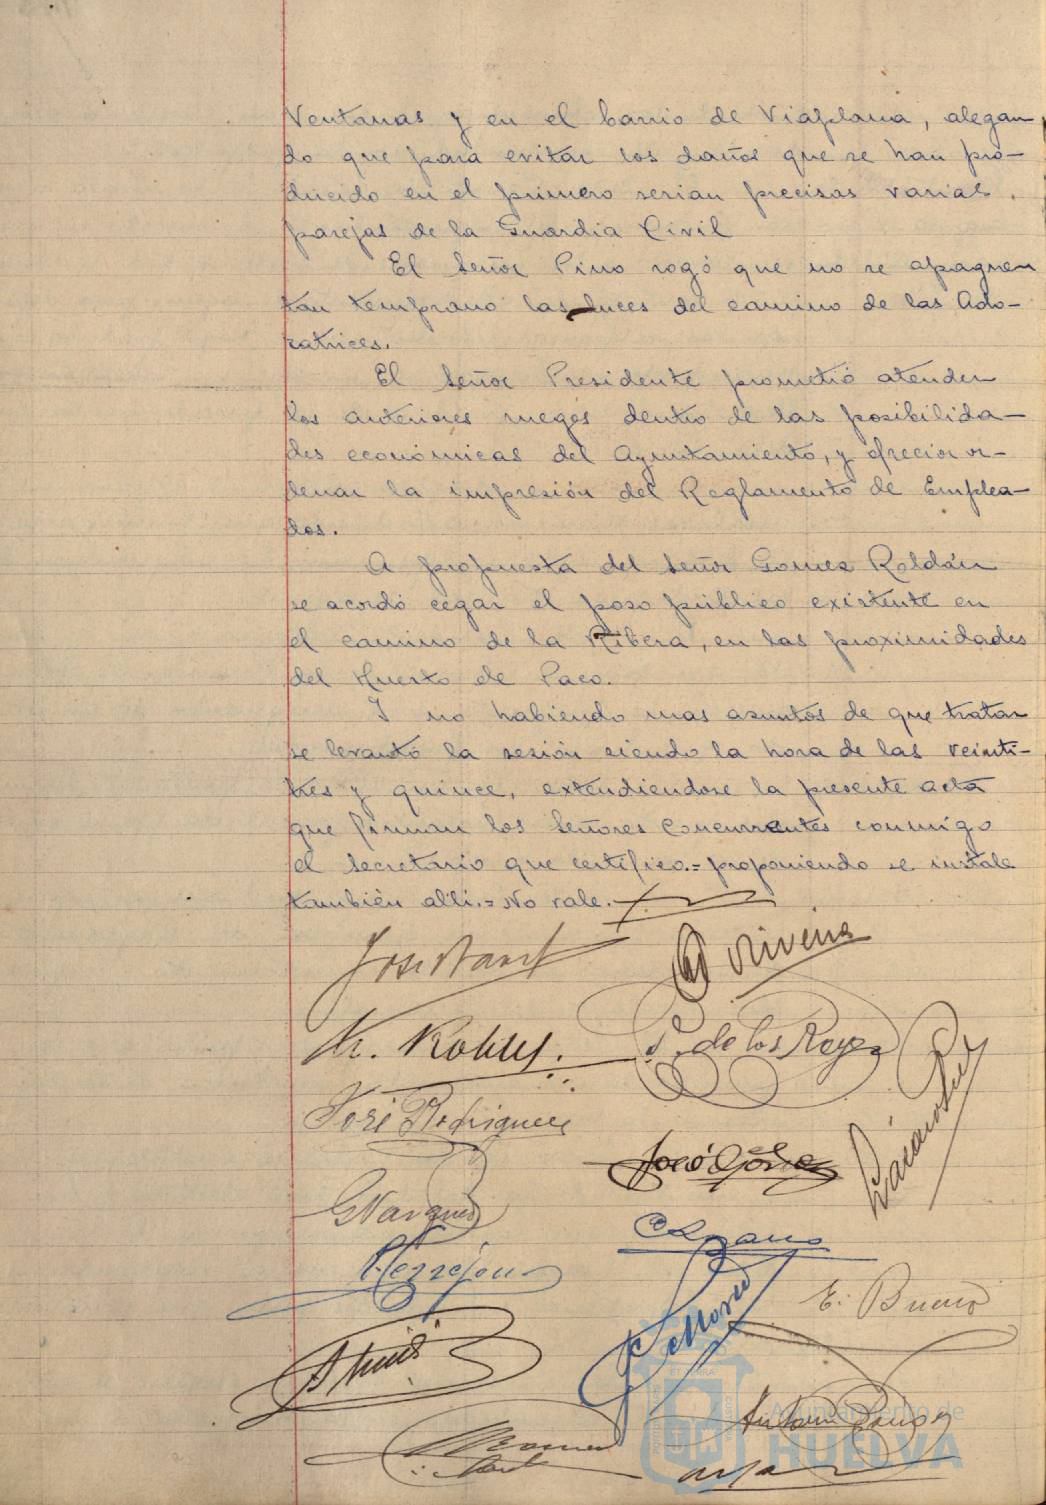 Ventanas y en el barrio de Viaplana, alegan
do que para evitar los daños que se han pro-
ducido en el primero serian precisas varias
parejas de la Guardia Civil
El Señor Pino rogó que no se apaguen
tan temprano las luces del camino de las Ado-
ratrices.
El Señor Presidente prometió atender
los anteriores ruegos dentro de las posibilida-
des económicas del Ayuntamiento, y ofreció or-
denar la impresión del Reglamento de Emplea-
dos.
A propuesta del Señor Gomez Roldán
se acordó cegar el poso público existente en
el camino de la Ribera, en las proximidades
del Huerto de Paco.
Y no habiendo mas asuntos de que tratar
se levantó la sesión siendo la hora de las veinti-
tres y quince, extendiendose la presente acta
que firman los Señores concurrentes conmigo
el secretario que certifico.= proponiendo se instale
también alli.= No vale.
José
Rivera
Robles.
P. de los Reyes
José Rodriguez
José Gómez
G Marquez
Lozano
Terrejon
E. Bueno
Antonio
Ayuntamiento de
HUELVA